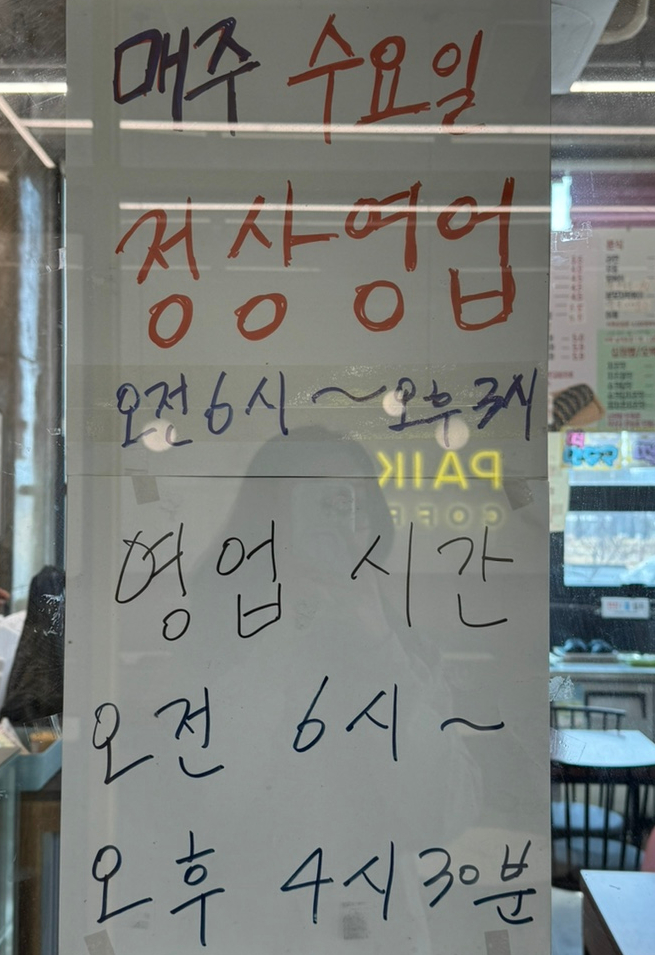 매주 수요일
정상영업
오전 6시 ~ 오후 3시
영업 시간
오전 6시 ~
오후 4시 30분
PAIK
COFF
분식